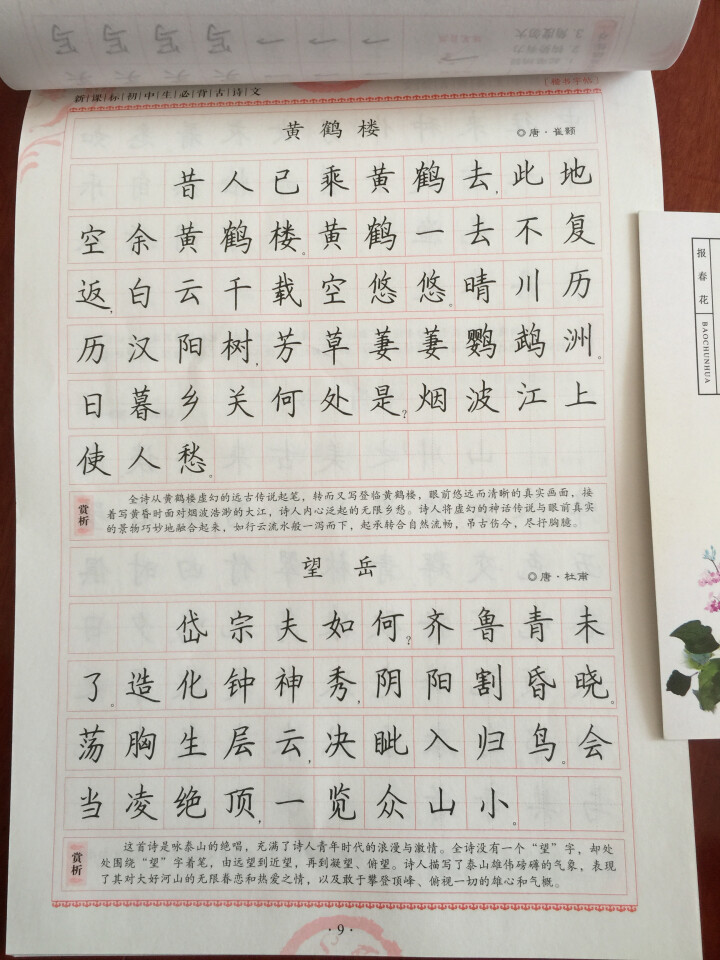 写 写 写 写
新课标初中生必背古诗文
黄鹤楼
◎唐·崔颢
昔人已乘黄鹤去,此地
空余黄鹤楼。黄鹤一去不复
返,白云千载空悠悠。晴川历
历汉阳树,芳草萋萋鹦鹉洲。
日暮乡关何处是?烟波江上
使人愁。
赏析
全诗从黄鹤楼虚幻的远古传说起笔，转而又写登临黄鹤楼，眼前悠远而清晰的真实画面，接
着写黄昏时面对烟波浩渺的大江，诗人内心泛起的无限乡愁。诗人将虚幻的神话传说与眼前真实
的景物巧妙地融合起来，如行云流水般一泻而下，起承转合自然流畅，吊古伤今，尽抒胸臆。
望岳
◎唐·杜甫
岱宗夫如何?齐鲁青未
了。造化钟神秀,阴阳割昏晓。
荡胸生层云,决眦入归鸟。会
当凌绝顶,一览众山小。
赏析
这首诗是咏泰山的绝唱，充满了诗人青年时代的浪漫与激情。全诗没有一个“望”字，却处
处围绕“望”字着笔，由远望到近望，再到凝望、俯望。诗人描写了泰山雄伟磅礴的气象，表现
了其对大好河山的无限眷恋和热爱之情，以及敢于攀登顶峰、俯视一切的雄心和气概。
·9·
报春花
BAOCHUNHUA